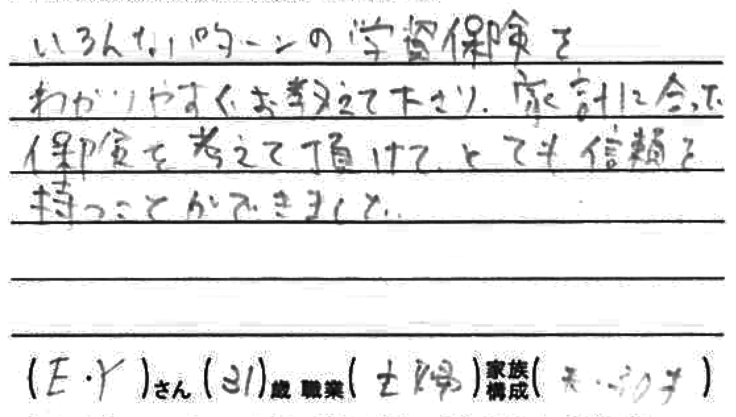 いろんなパターンの学資保険を
わかりやすくお教えて下さり、家計に合った
保険を考えて頂けて、とても信頼を
持つことができました。
(E・Y)さん (31)歳 職業(主婦) 家族構成(夫・　)